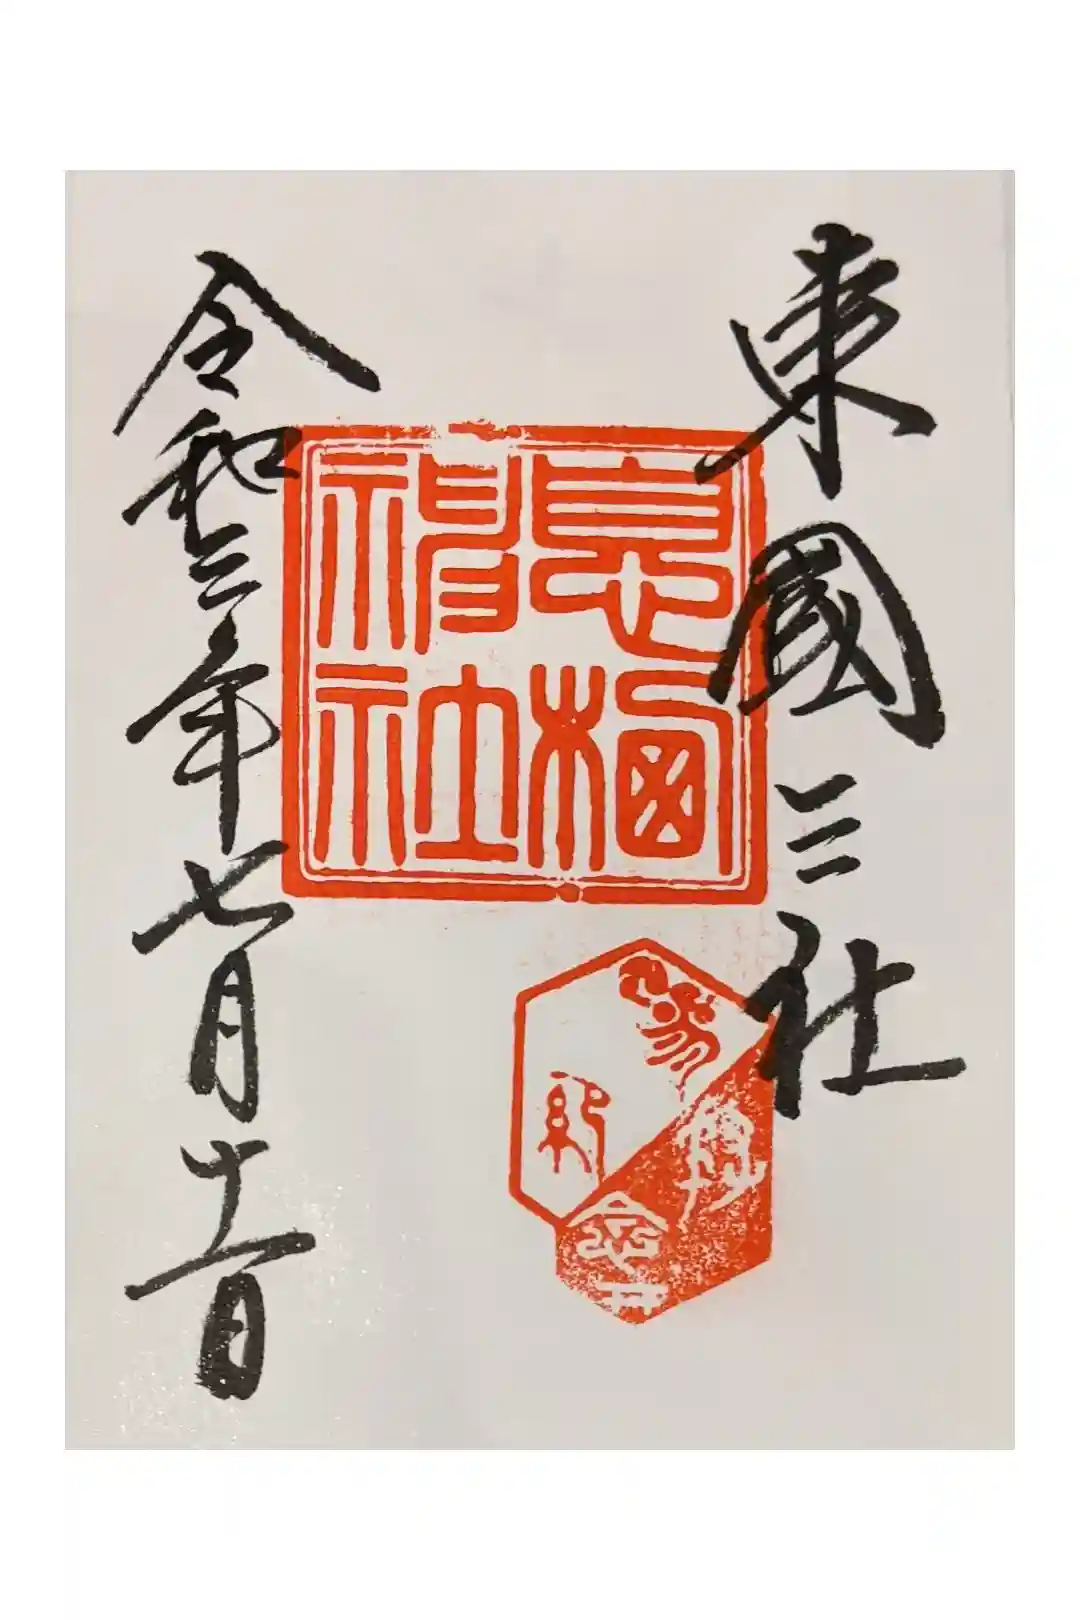 東國三社
息栖
神社
令和三年七月十一日